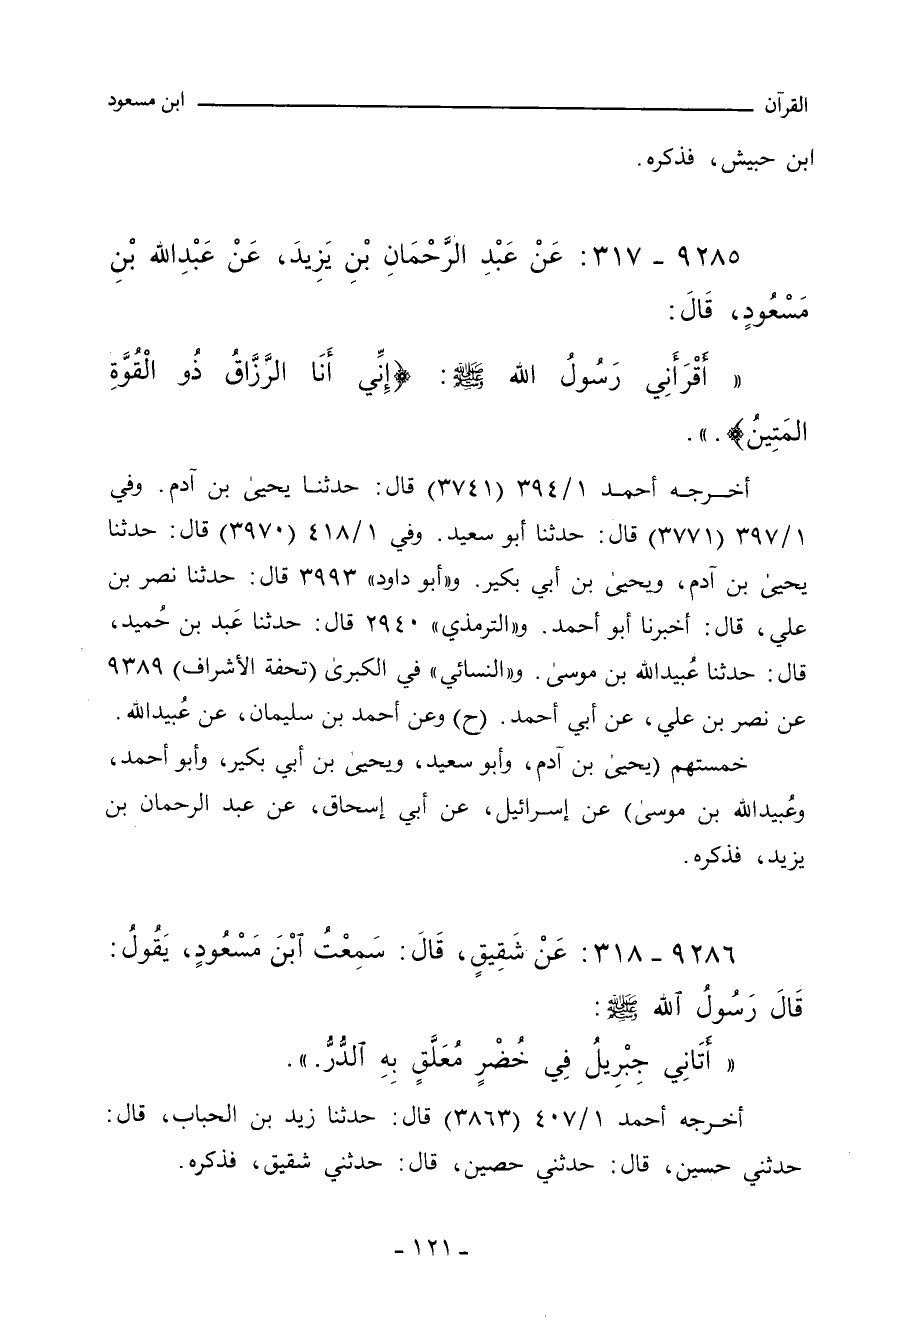 القرآن ــــــــــــــــــــ ابن مسعود
ابن حبيش، فذكره.
٩٢٨٥ ـ ٣١٧: عَنْ عَبْدِ الرَّحْمَانِ بْنِ يَزِيدَ، عَنْ عَبْدِالله بْنِ
مَسْعُودٍ، قَالَ:
« أَقْرَأَنِي رَسُولُ الله ﷺ: ﴿إِنِّي أَنَا الرَّزَّاقُ ذُو الْقُوَّةِ
المَتِينُ﴾. ».
أخـرجـه أحمـد ٣٩٤/١ (٣٧٤١) قال: حدثنـا يحيىٰ بن آدم. وفي
٣٩٧/١ (٣٧٧١) قال: حدثنا أبو سعيد. وفي ٤١٨/١ (٣٩٧٠) قال: حدثنا
يحيىٰ بن آدم، ويحيىٰ بن أبي بكير. و«أبو داود» ٣٩٩٣ قال: حدثنا نصر بن
علي، قال: أخبرنا أبو أحمد. و«الترمذي» ٢٩٤٠ قال: حدثنا عَبد بن حُميد،
قال: حدثنا عُبيدالله بن موسىٰ. و«النسائي» في الكبرىٰ (تحفة الأشراف) ٩٣٨٩
عن نصر بن علي، عن أبي أحمد. (ح) وعن أحمد بن سليمان، عن عُبيدالله.
خمستهم (يحيىٰ بن آدم، وأبو سعيد، ويحيىٰ بن أبي بكير، وأبو أحمد،
وعُبيدالله بن موسىٰ) عن إسـرائيل، عن أبي إسحاق، عن عبد الرحمان بن
يزيد، فذكره.
٩٢٨٦ ـ ٣١٨: عَنْ شَقِيقٍ، قَالَ: سَمِعْتُ ٱبْنَ مَسْعُودٍ، يَقُولُ:
قَالَ رَسُولُ ٱلله ﷺ:
« أَتَانِي جِبْرِيلُ فِي خُضْرٍ مُعَلَّقٍ بِهِ ٱلدُّرُّ. ».
أخـرجه أحمد ٤٠٧/١ (٣٨٦٣) قال: حدثنا زيد بن الحباب، قال:
حدثني حسين، قال: حدثني حصين، قال: حدثني شقيق، فذكره.
ـ ١٢١ ـ